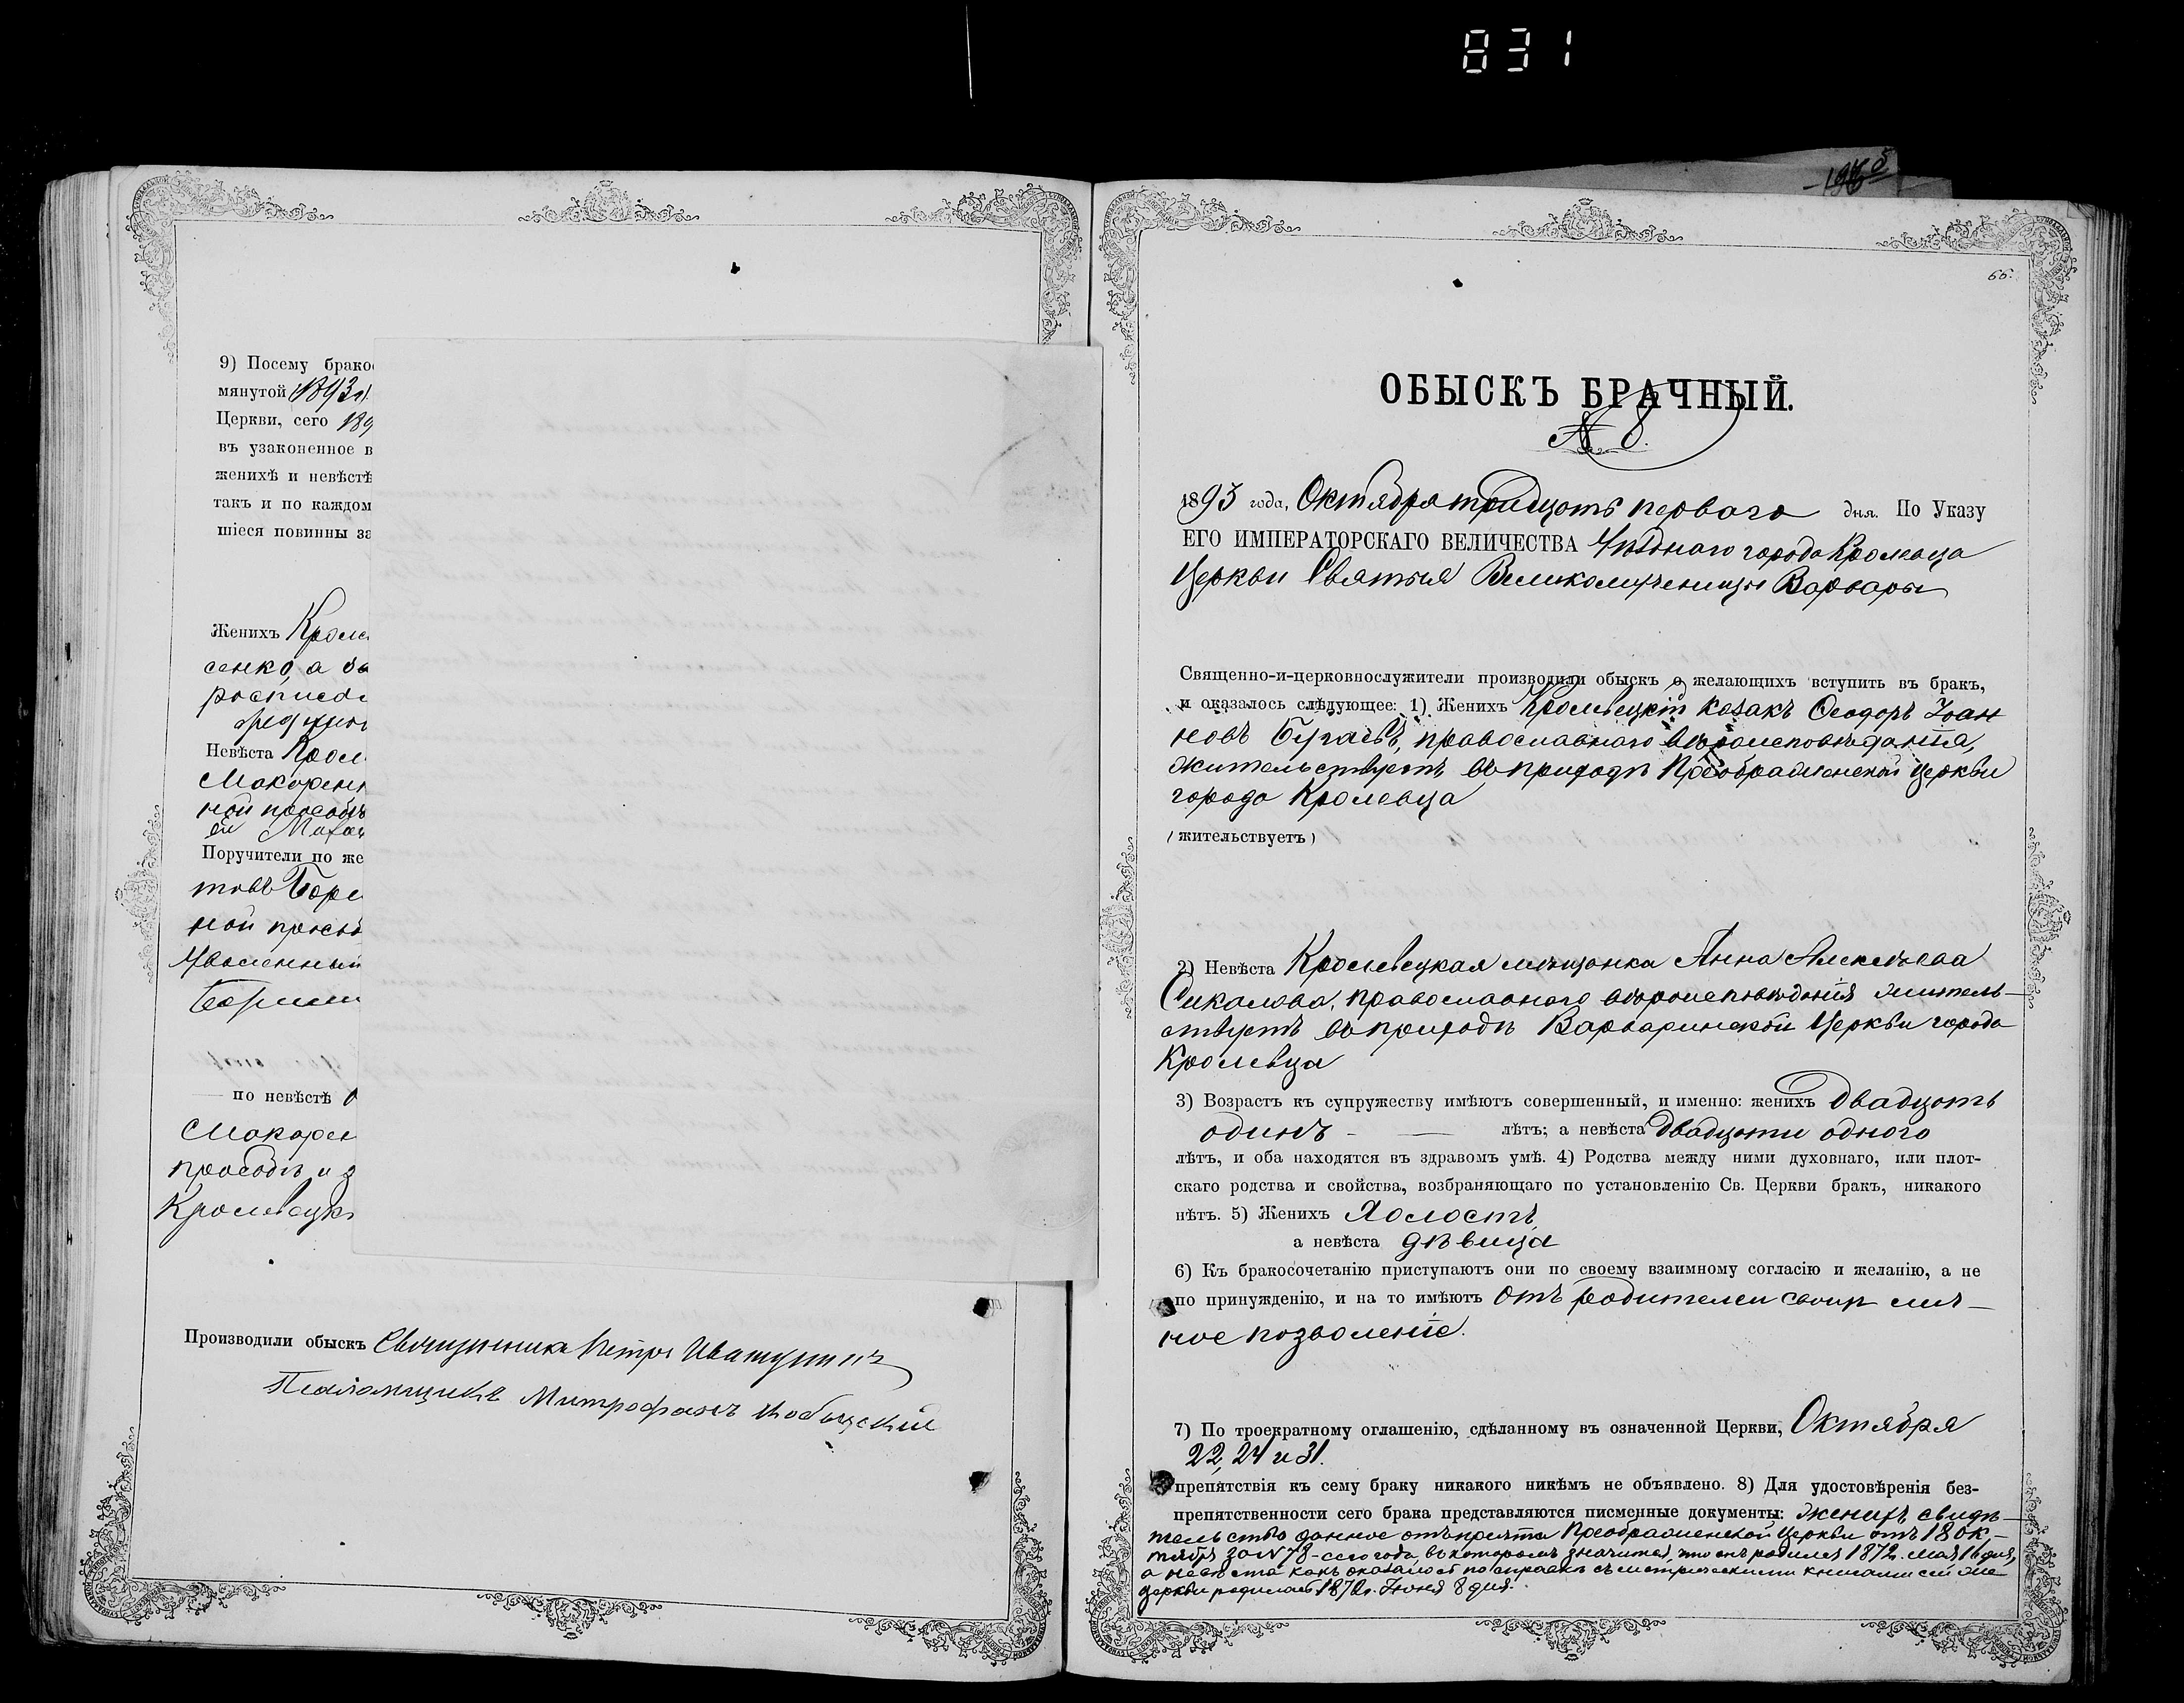 831
196
9) Посему брако
мянутой 1893
Церкви, сего 189
въ узаконенное в
женихѣ и невѣстѣ
такъ и по каждом
шіеся повинны за
Женихъ Кроле
сенко, а за
росписа
Невѣста Кроле
Макорен
ной просьб
Поручители по же
товъ Боре
ной просьб
по невѣстѣ
Макорен
просьбѣ и з
Кролевецк
Производили обыскъ Священникъ Петръ Ивашутичъ
Псаломщикъ Митрофанъ
66.
ОБЫСКЪ БРАЧНЫЙ.
№ 8.
1893 года, Октября тридцать перваго дня. По Указу
ЕГО ИМПЕРАТОРСКАГО ВЕЛИЧЕСТВА Уѣзднаго города Кролевца
Церкви Святыя Великомученицы Варвары
Священно-и-церковнослужители производили обыскъ о желающихъ вступить въ бракъ,
и оказалось слѣдующее: 1) Женихъ Кролевецкій козакъ Ѳеодоръ Іоан
новъ Бугаевъ, православнаго вѣроисповѣданія,
жительствуетъ въ приходѣ Преображенской Церкви
города Кролевца
(жительствуетъ)
2) Невѣста Кролевецкая мѣщанка Анна Алексѣева
Сикалова, православнаго вѣроисповѣданія житель-
ствуетъ въ приходѣ Варваринской Церкви города
Кролевца
3) Возрастъ къ супружеству имѣютъ совершенный, и именно: женихъ двадцать
одинъ - — лѣтъ; а невѣста двадцати одного
лѣтъ, и оба находятся въ здравомъ умѣ. 4) Родства между ними духовнаго, или плот-
скаго родства и свойства, возбраняющаго по установленію Св. Церкви бракъ, никакого
нѣтъ. 5) Женихъ Холостъ,
а невѣста дѣвица
6) Къ бракосочетанію приступаютъ они по своему взаимному согласію и желанію, а не
по принужденію, и на то имѣютъ отъ родителей своихъ лич-
ное позволеніе.
7) По троекратному оглашенію, сдѣланному въ означенной Церкви, Октября
22, 24 и 31.
препятствія къ сему браку никакого никѣмъ не объявлено. 8) Для удостовѣренія без-
препятственности сего брака представляются писменные документы: женихъ свидѣ-
тельство данное отъ причта Преображенской Церкви отъ 18 Ок-
тября за N 78 - сего года, въ которомъ значится, что онъ родился 1872 г. мая 16 дня,
а невѣста какъ оказалось по справкѣ съ метрическими книгами сей же
церкви родилась 1872 г. Іюня 8 дня.